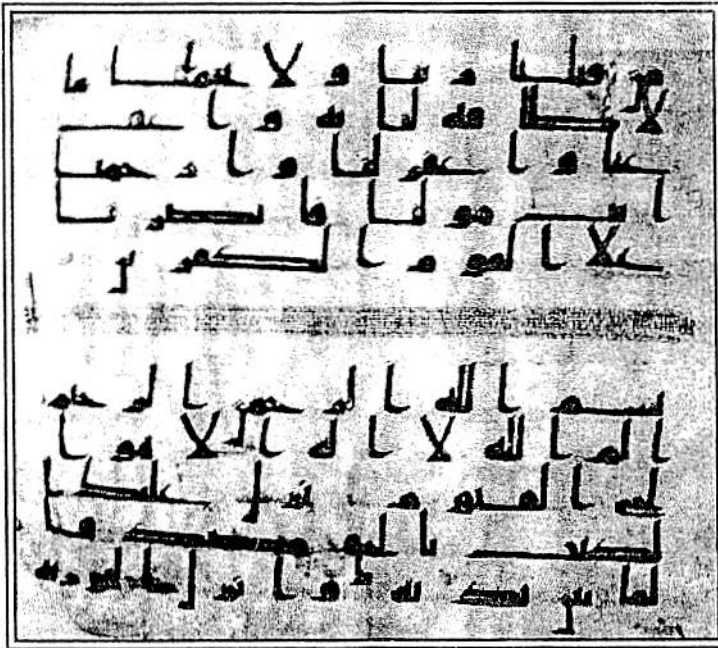 من قبلنا ربنا و لا تحملنا ما
لا طاقة لنا به و اعف
عنا و اغفر لنا و ارحمنا
انت مولنا فانصرنا
علا القوم الكفرين
بسم الله الرحمن الرحيم
الم الله لا اله الا هو ا
لحي القيوم نزل عليك ا
لكتب بالحق مصدقا
لما بين يديه و انزل التوريه